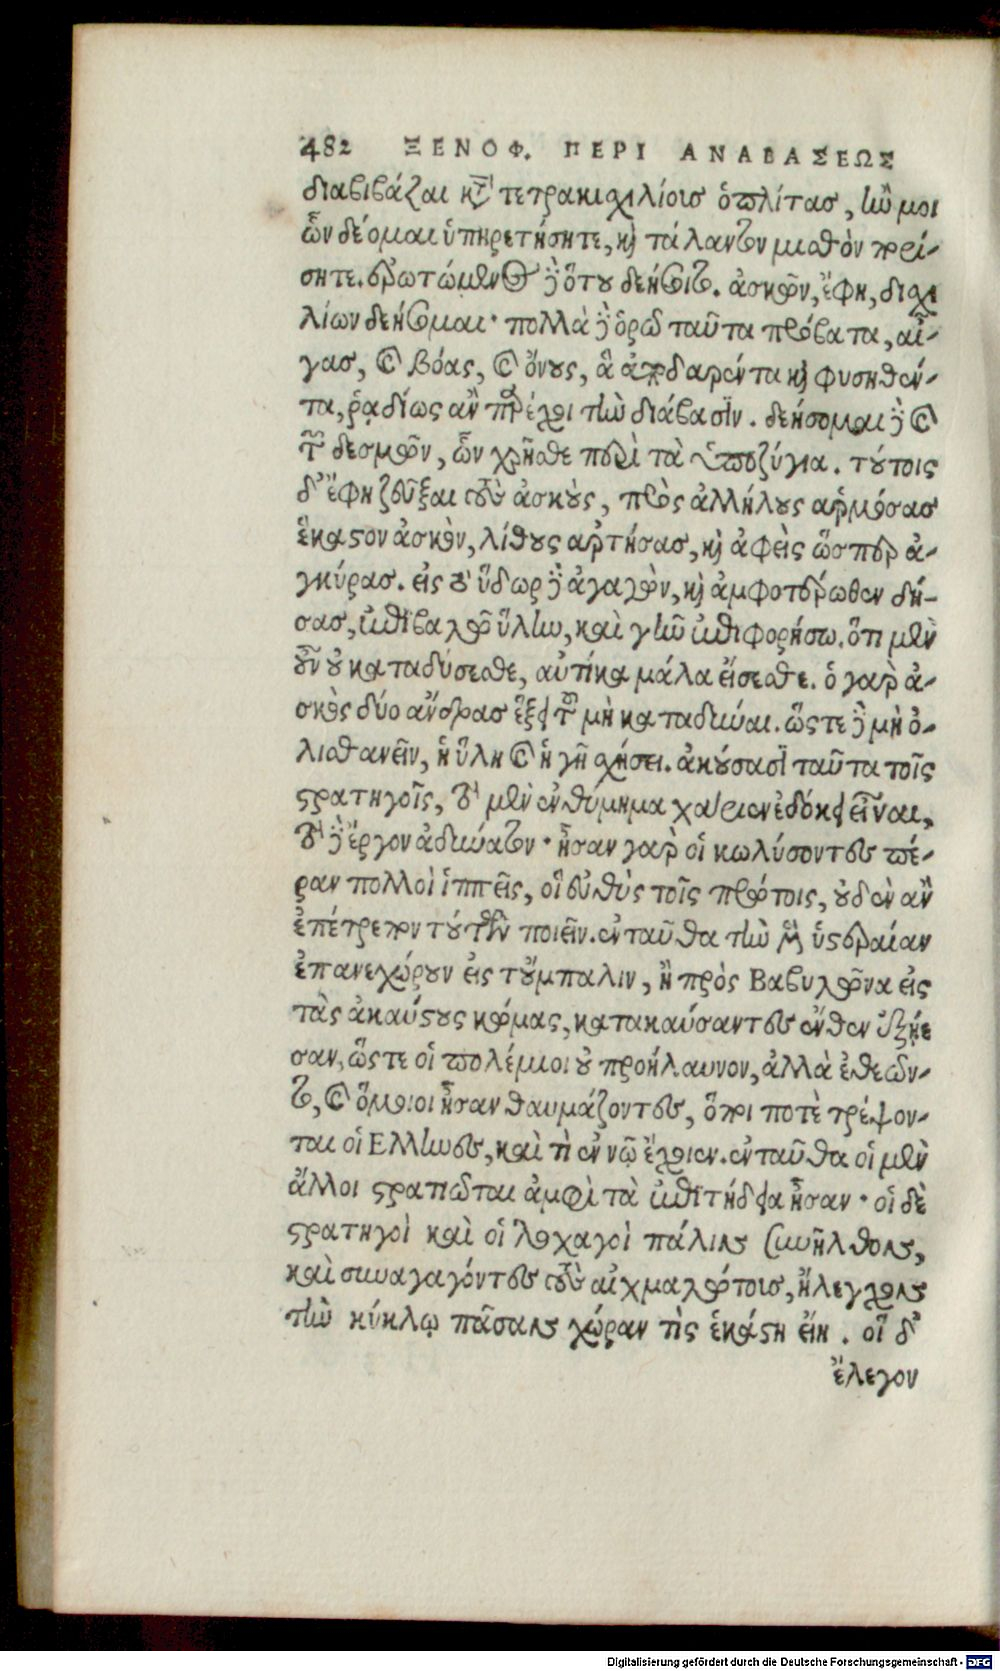 482 ΞΕΝΟΦ. ΠΕΡΙ ΑΝΑΒΑΣΕΩΣ
διαβιβάζαι κτ τετρακιχιλίους ὁπλίτας, ἢν μοι
ὧν δέομαι ὑπηρετήσητε, καὶ τάλαντον μισθὸν πορί-
σητε. ἐρωτώμενος δὲ ὅτου δέησοιτο. ἀσκῶν, ἔφη, διχι
λίων δεήσομαι· πολλὰ δὲ ὁρῶ ταῦτα πρόβατα, αἶ-
γας, καὶ βόας, καὶ ὄνους, ἃ ἀποδαρέντα καὶ φυσηθέν-
τα, ῥᾳδίως ἂν παρέχοι τὴν διάβασιν. δεήσομαι δὲ καὶ
τῶν δεσμῶν, ὧν χρῆσθε περὶ τὰ ὑποζύγια. τούτοις
δ' ἔφη ζεῦξαι τοὺς ἀσκοὺς, πρὸς ἀλλήλους ἁρμόσας
ἕκαστον ἀσκὸν, λίθους ἀρτήσας, καὶ ἀφεὶς ὥσπερ ἀ-
γκύρας. εἰς τὸ ὕδωρ δὲ ἀγαγὼν, καὶ ἀμφοτέρωθεν δή-
σας, ἐπιβαλῶ ὕλην, καὶ γῆν ἐπιφορήσω. ὅτι μὲν
οὖν οὐ καταδύσεσθε, αὐτίκα μάλα εἴσεσθε. ὁ γὰρ ἀ-
σκὸς δύο ἄνδρας ἕξει τοῦ μὴ καταδῦναι. ὥστε δὲ μὴ ὀ-
λισθανεῖν, ἡ ὕλη καὶ ἡ γῆ σχήσει. ἀκούσασι ταῦτα τοῖς
στρατηγοῖς, τὸ μὲν ἐνθύμημα χαρίεν ἐδόκει εἶναι,
τὸ δὲ ἔργον ἀδύνατον· ἦσαν γὰρ οἱ κωλύσοντες πέ-
ραν πολλοὶ ἱππεῖς, οἳ εὐθὺς τοῖς πρώτοις, οὐδὲν ἂν
ἐπέτρεπον τούτων ποιεῖν. ἐνταῦθα τὴν μὲν ὑστεραίαν
ἐπανεχώρουν εἰς τοὔμπαλιν, ἢ πρὸς Βαβυλῶνα εἰς
τὰς ἀκαύστους κώμας, κατακαύσαντες ἔνθεν ἐξῄε
σαν, ὥστε οἱ πολέμιοι οὐ προήλαυνον, ἀλλὰ ἐθεῶν-
το, καὶ ὅμοιοι ἦσαν θαυμάζοντες, ὅποι ποτὲ τρέψον-
ται οἱ Ελληνες, καὶ τὶ ἐν νῷ ἔχοιεν. ἐνταῦθα οἱ μὲν
ἄλλοι στρατιῶται ἀμφὶ τὰ ἐπιτήδεια ἦσαν· οἱ δὲ
στρατηγοὶ καὶ οἱ λοχαγοὶ πάλιν συνῆλθον,
καὶ συναγαγόντες τοὺς αἰχμαλώτους, ἤλεγχον
τὴν κύκλῳ πᾶσαν χώραν τὶς ἑκάστη εἴη. οἳ δ'
ἔλεγον
Digitalisierung gefördert durch die Deutsche Forschungsgemeinschaft - DFG